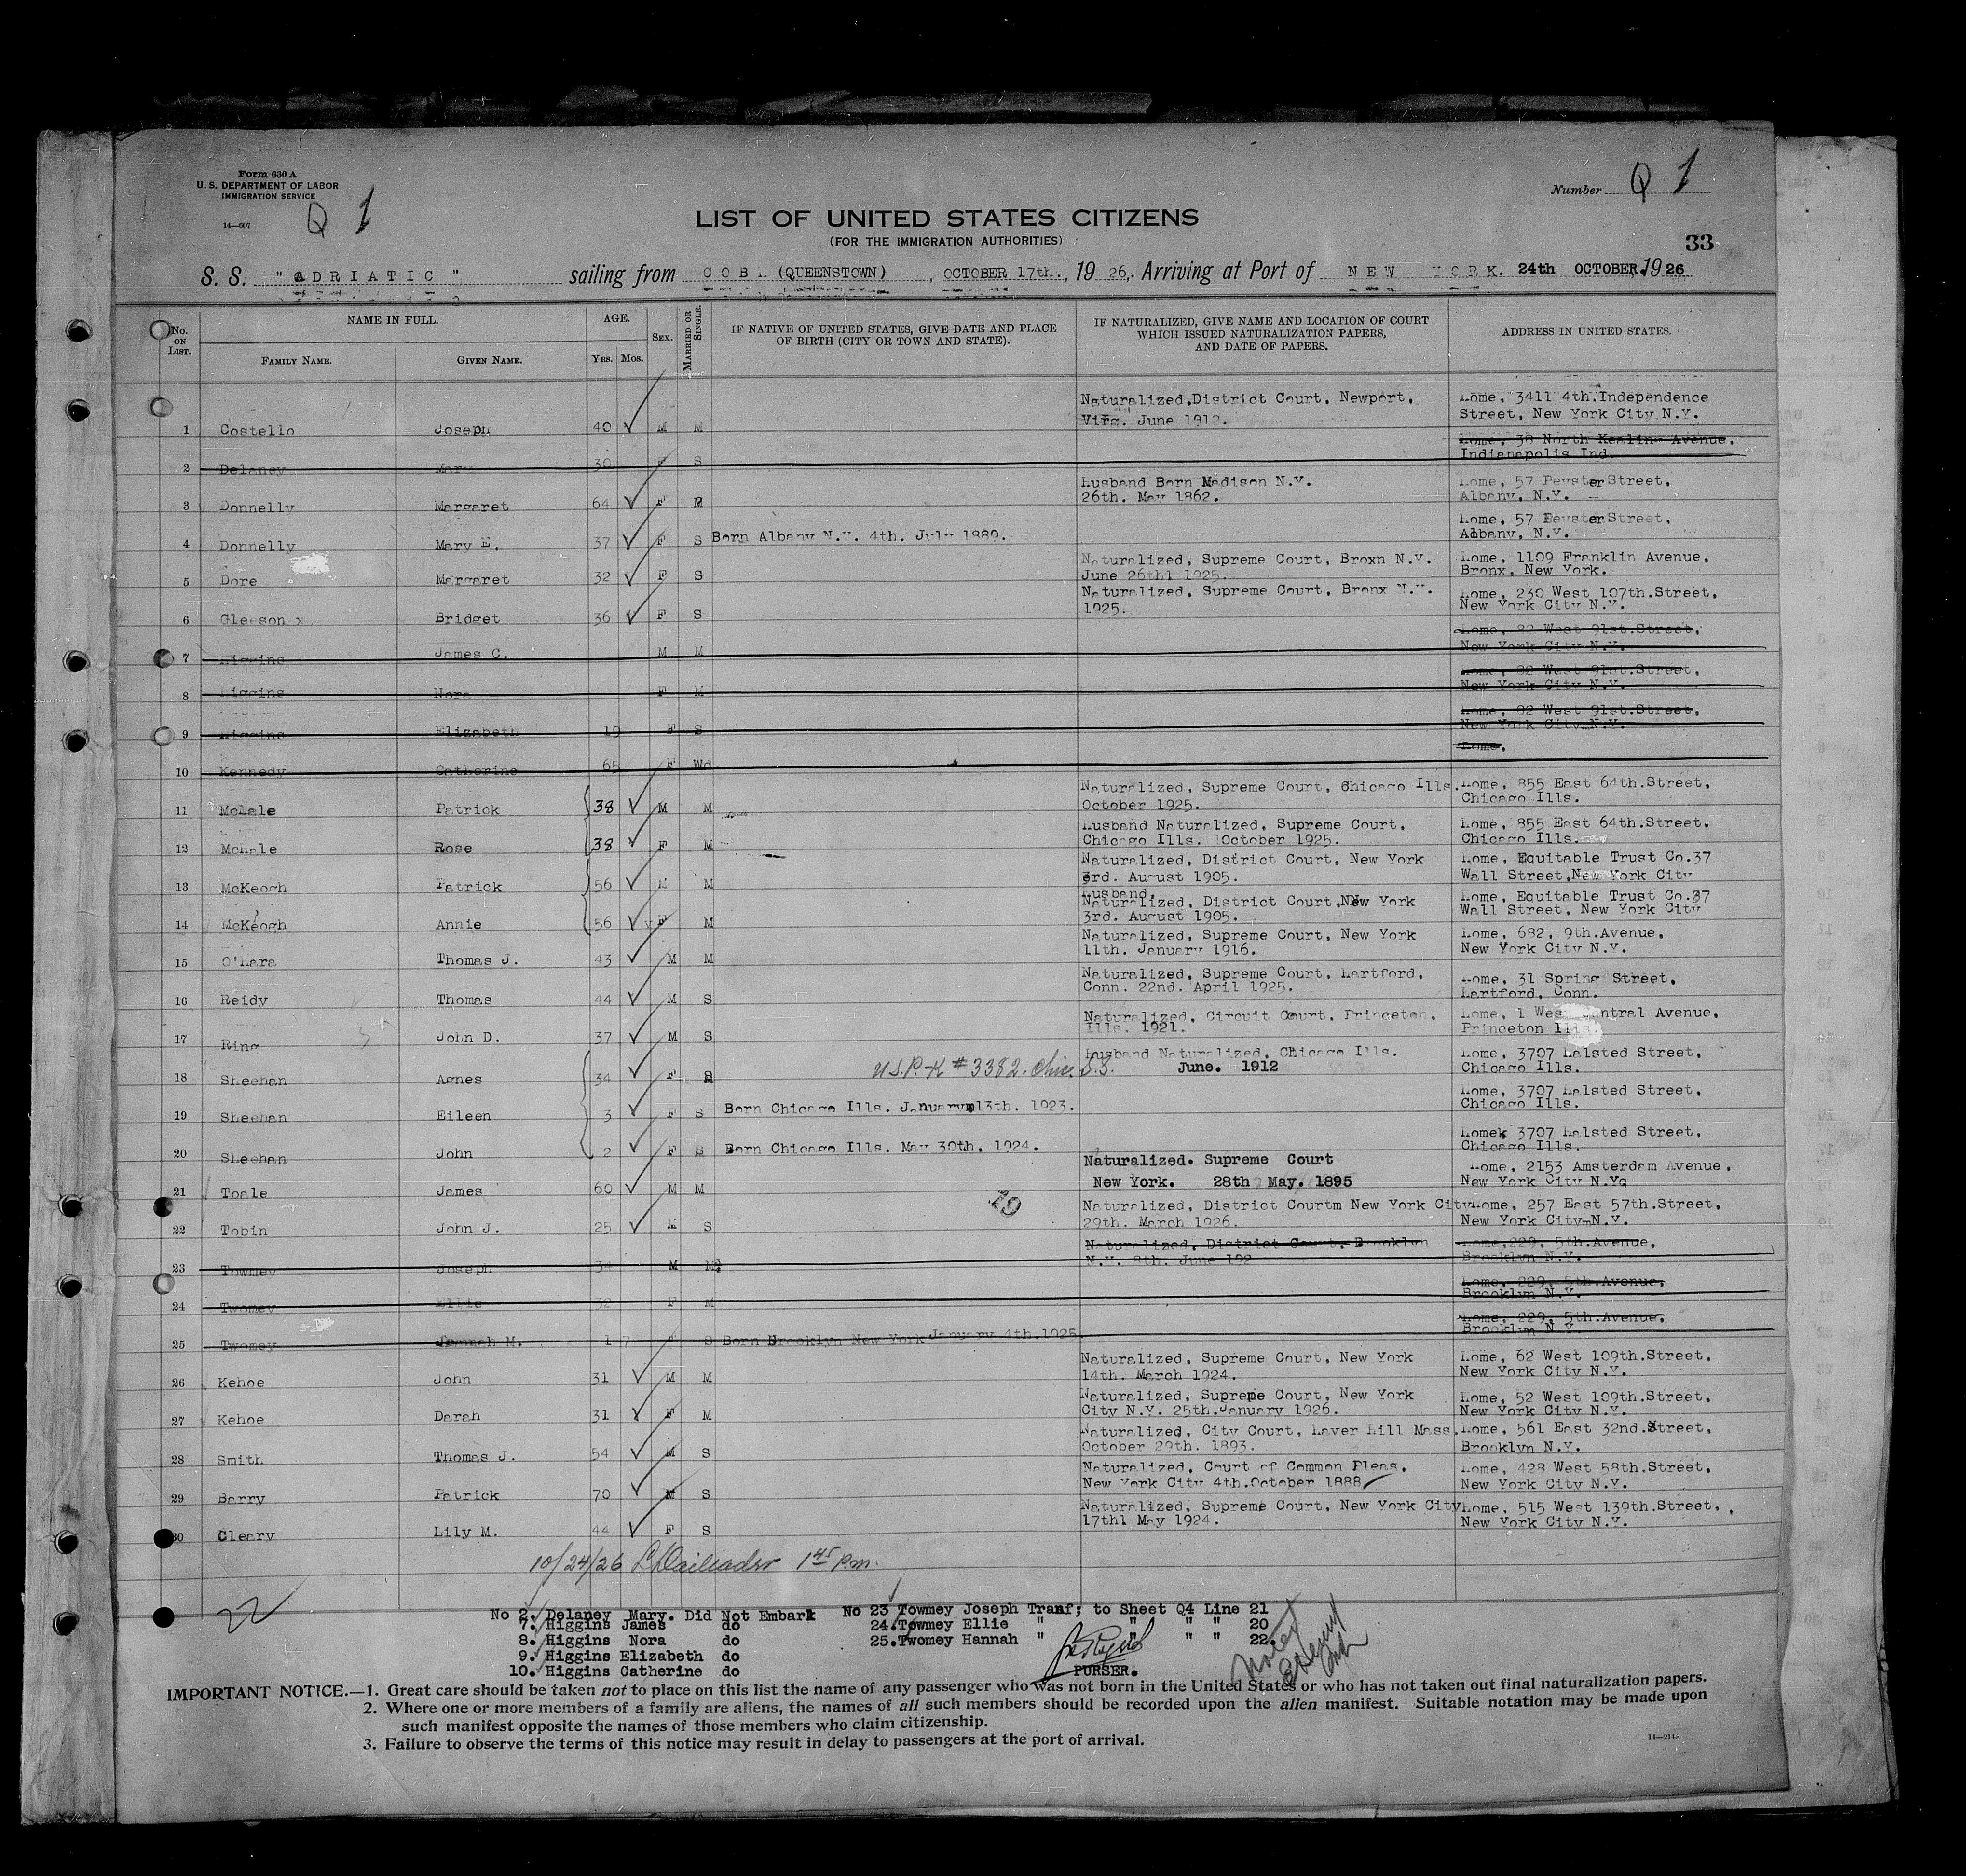 Form 630 A
U. S. DEPARTMENT OF LABOR
IMMIGRATION SERVICE
14—607
Q 1
Number Q 1
LIST OF UNITED STATES CITIZENS
(FOR THE IMMIGRATION AUTHORITIES)
33
S. S. "ADRIATIC" sailing from COBH (QUEENSTOWN), OCTOBER 17th., 1926, Arriving at Port of NEW YORK. 24th OCTOBER. 1926
No. ON LIST.
NAME IN FULL.
FAMILY NAME.
GIVEN NAME.
AGE.
YRS. MOS.
SEX.
MARRIED OR SINGLE.
IF NATIVE OF UNITED STATES, GIVE DATE AND PLACE
OF BIRTH (CITY OR TOWN AND STATE).
IF NATURALIZED, GIVE NAME AND LOCATION OF COURT
WHICH ISSUED NATURALIZATION PAPERS,
AND DATE OF PAPERS.
ADDRESS IN UNITED STATES.
Naturalized,District Court, Newport, Home, 3411 4th.Independence
1 Costello Joseph 40 M M Virg. June 1912. Street, New York City N.Y.
Home, 38 North Avenue,
2 Delaney Mary 30 F S Indianapolis Ind.
Husband Born Madison N.Y. Home, 57 Peyster Street,
3 Donnelly Margaret 64 F 26th. May 1862. Albany, N.Y.
Home, 57 Peyster Street,
4 Donnelly Mary E. 37 F S Born Albany N.Y. 4th. July 1889. Albany, N.Y.
Naturalized, Supreme Court, Broxn N.Y. Home, 1109 Franklin Avenue,
5 Dore Margaret 32 F S June 26thl 1925. Bronx, New York.
Naturalized, Supreme Court, Bronx N.Y. Home, 230 West 107th.Street,
6 Gleeson x Bridget 36 F S 1925. New York City N.Y.
Home, 82 West 91st.Street,
7 Higgins James C. M M New York City N.Y.
Home, 82 West 91st.Street,
8 Higgins Nora F M New York City N.Y.
Home, 82 West 91st.Street,
9 Higgins Elizabeth 19 F S New York City N.Y.
Home,
10 Kennedy Catherine 65 F Wd
Naturalized, Supreme Court, Chicago Ills. Home, 855 East 64th.Street,
11 McHale Patrick 38 M M October 1925. Chicago Ills.
Husband Naturalized, Supreme Court, Home, 855 East 64th.Street.
12 McHale Rose 38 F M Chicago Ills. October 1925. Chicago Ills.
Naturalized, District Court, New York Home, Equitable Trust Co.37
13 McKeogh Patrick 56 M M 3rd. August 1905. Wall Street,New York City
Husband,
Naturalized, District Court,New York Home, Equitable Trust Co.37
14 McKeogh Annie 56 F M 3rd. August 1905. Wall Street, New York City
Naturalized, Supreme Court, New York Home, 682, 9th.Avenue,
15 O'Hara Thomas J. 43 M M 11th. January 1916. New York City N.Y.
Naturalized, Supreme Court, Hartford, Home, 31 Spring Street,
16 Reidy Thomas 44 M S Conn. 22nd. April 1925. Hartford, Conn.
Naturalized, Circuit Court, Princeton, Home, 1 West Central Avenue,
17 Ring John D. 37 M S Ills. 1921. Princeton Ills.
Husband Naturalized, Chicago Ills. Home, 3707 Halsted Street,
18 Sheehan Agnes 34 F U.S.P.-K # 3382. Chic. June. 1912 Chicago Ills.
Home, 3707 Halsted Street,
19 Sheehan Eileen 3 F S Born Chicago Ills. January 13th. 1923. Chicago Ills.
Homek 3707 Halsted Street,
20 Sheehan John 2 F S Born Chicago Ills. May 30th. 1924. Chicago Ills.
Naturalized. Supreme Court Home, 2153 Amsterdam Avenue,
21 Toale James 60 M M New York. 28th May. 1895 New York City N.YG
Naturalized, District Courtm New York City Home, 257 East 57th.Street,
22 Tobin John J. 25 M S 29th. March 1926. New York CitymN.Y.
Naturalized, District Court, Brooklyn Home,229, 5th.Avenue,
23 Towmey Joseph 34 M M N.Y. 8th. June 192 Brooklyn N.Y.
Home, 229, 5th.Avenue,
24 Twomey Ellie 32 F M Brooklyn N.Y.
Home, 229, 5th.Avenue,
25 Twomey Hannah M. 1 7 F S Born Brooklyn New York January 4th.1925 Brooklyn N.Y.
Naturalized, Supreme Court, New York Home, 62 West 109th.Street,
26 Kehoe John 31 M M 14th. March 1924. New York City N.Y.
Naturalized, Supreme Court, New York Home, 52 West 109th.Street,
27 Kehoe Darah 31 F M City N.Y. 25th.January 1926. New York City N.Y.
Naturalized, City Court, Haver Hill Mass. Home, 561 East 32nd.Street,
28 Smith Thomas J. 54 M S October 29th. 1893. Brooklyn N.Y.
Naturalized, Court of Common Pleas, Home, 428 West 58th.Street,
29 Barry Patrick 70 M S New York City 4th.October 1888 New York City N.Y.
Naturalized, Supreme Court, New York City Home, 515 West 139th.Street,
30 Cleary Lily M. 44 F S 17thl May 1924. New York City N.Y.
10/24/26 1 45 p.m.
22
No 2. Delaney Mary. Did Not Embark No 23 Towmey Joseph Tranf; to Sheet Q4 Line 21
7. Higgins James do 24. Towmey Ellie " " " " 20
8. Higgins Nora do 25. Twomey Hannah " " " " 22.
9. Higgins Elizabeth do
10. Higgins Catherine do PURSER.
IMPORTANT NOTICE.—1. Great care should be taken not to place on this list the name of any passenger who was not born in the United States or who has not taken out final naturalization papers.
2. Where one or more members of a family are aliens, the names of all such members should be recorded upon the alien manifest. Suitable notation may be made upon
such manifest opposite the names of those members who claim citizenship.
3. Failure to observe the terms of this notice may result in delay to passengers at the port of arrival.